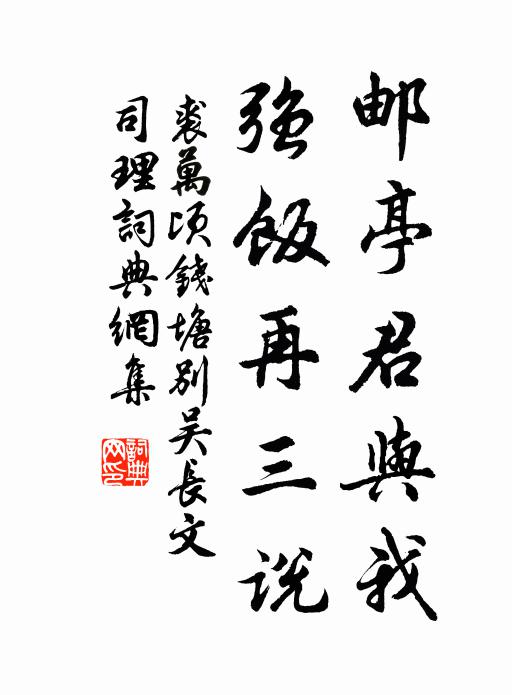 邮亭君與我
強飯再三说
裘萬頃錢塘别吴長文
司理詞典網集
詞典网印